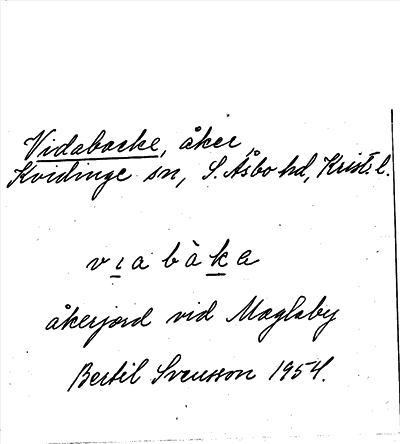 Vidabacke, åker,
Kvidinge sn, S. Åsbo hd, Krist. l.
v ı a b à k a
åkerjord vid Maglaby
Bertil Svensson 1954.